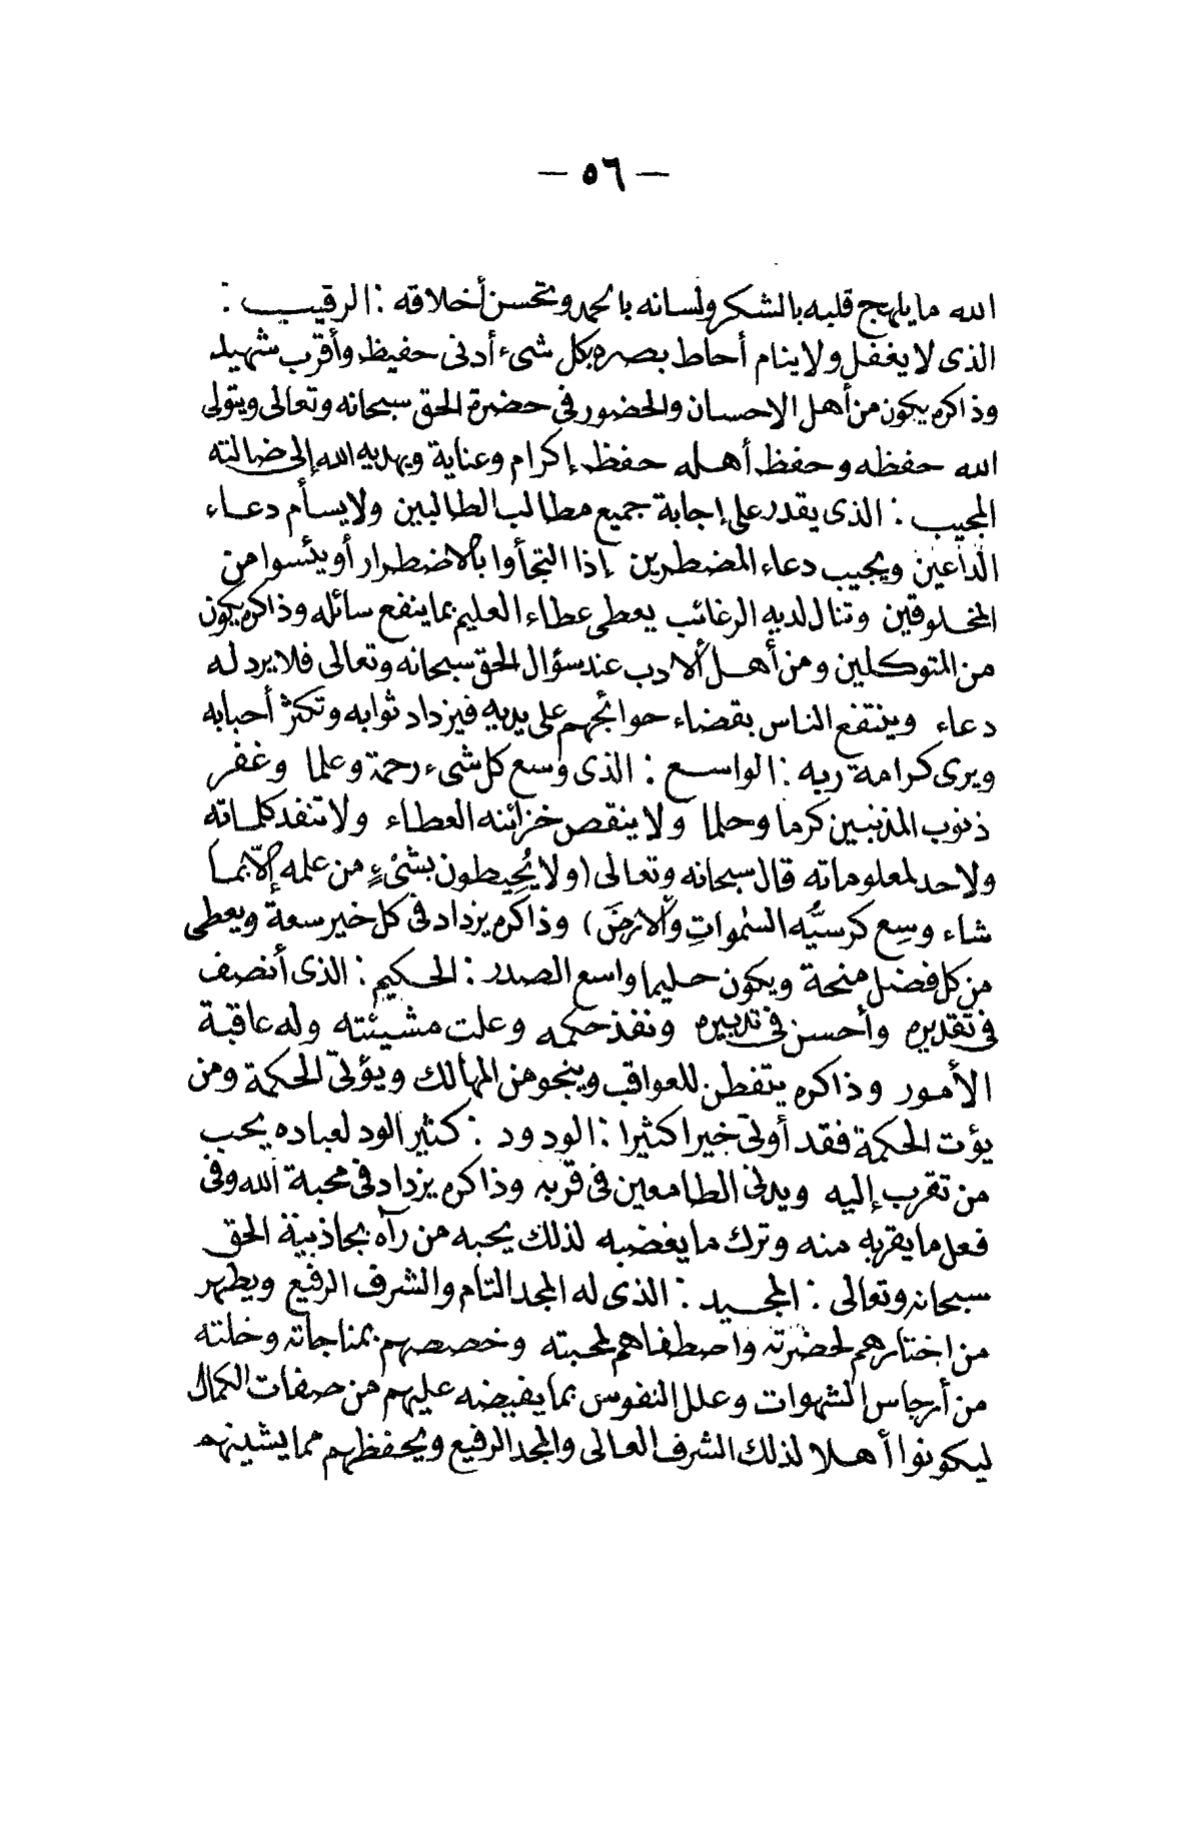 — ٥٦ —
الله ما يلهج قلبه بالشكر ولسانه بالحمد وتحسن أخلاقه : الرقيب :
الذى لا يغفل ولا ينام أحاط بصره بكل شىء أدنى حفيظ وأقرب شهيد
وذاكره يكون من أهل الإحسان والحضور فى حضرة الحق سبحانه وتعالى ويتولى
الله حفظه وحفظ أهله حفظ إكرام وعناية ويهديه الله إلى ضالته
المجيب : الذى يقدر على إجابة جميع مطالب الطالبين ولا يسأم دعاء
الداعين ويجيب دعاء المضطرين إذا التجأوا بالاضطرار أو يئسوا من
المخلوقين وتنال لديه الرغائب يعطى عطاء العليم بما ينفع سائله وذاكره يكون
من المتوكلين ومن أهل الأدب عند سؤال الحق سبحانه وتعالى فلا يرد له
دعاء وينتفع الناس بقضاء حوائجهم على يديه فيزداد ثوابه وتكثر أحبابه
ويرى كرامة ربه : الواسع : الذى وسع كل شىء رحمة وعلما وغفر
ذنوب المذنبين كرما وحلما ولا ينقص خزائنه العطاء ولا تنفد كلماته
ولا حد لمعلوماته قال سبحانه وتعالى (ولا يُحِيطون بشىْءٍ من علمه إلاّ بما
شاء وسِع كرسيُّه السمٰواتِ والأرضَ) وذاكره يزداد فى كل خير سعة ويعطى
من كل فضل منحة ويكون حليما واسع الصدر : الحكيم : الذى أنصف
فى تقديره وأحسن فى تدبيره ونفذ حكمه وعلت مشيئته وله عاقبة
الأمور وذاكره يتفطن للعواقب وينجو من المهالك ويؤتى الحكمة ومن
يؤت الحكمة فقد أوتى خيرا كثيرا : الودود : كثير الود لعباده يحب
من تقرب إليه ويدنى الطامعين فى قربه وذاكره يزداد فى محبة الله وفى
فعل ما يقربه منه وترك ما يغضبه لذلك يحبه من رآه بجاذبية الحق
سبحانه وتعالى : المجيد : الذى له المجد التام والشرف الرفيع ويطهر
من اختارهم لحضرته واصطفاهم لمحبته وخصصهم بمناجاته وخلته
من أرجاس الشهوات وعلل النفوس بما يفيضه عليهم من صفات الكمال
ليكونوا أهلا لذلك الشرف العالى والمجد الرفيع ويحفظهم مما يشينهم